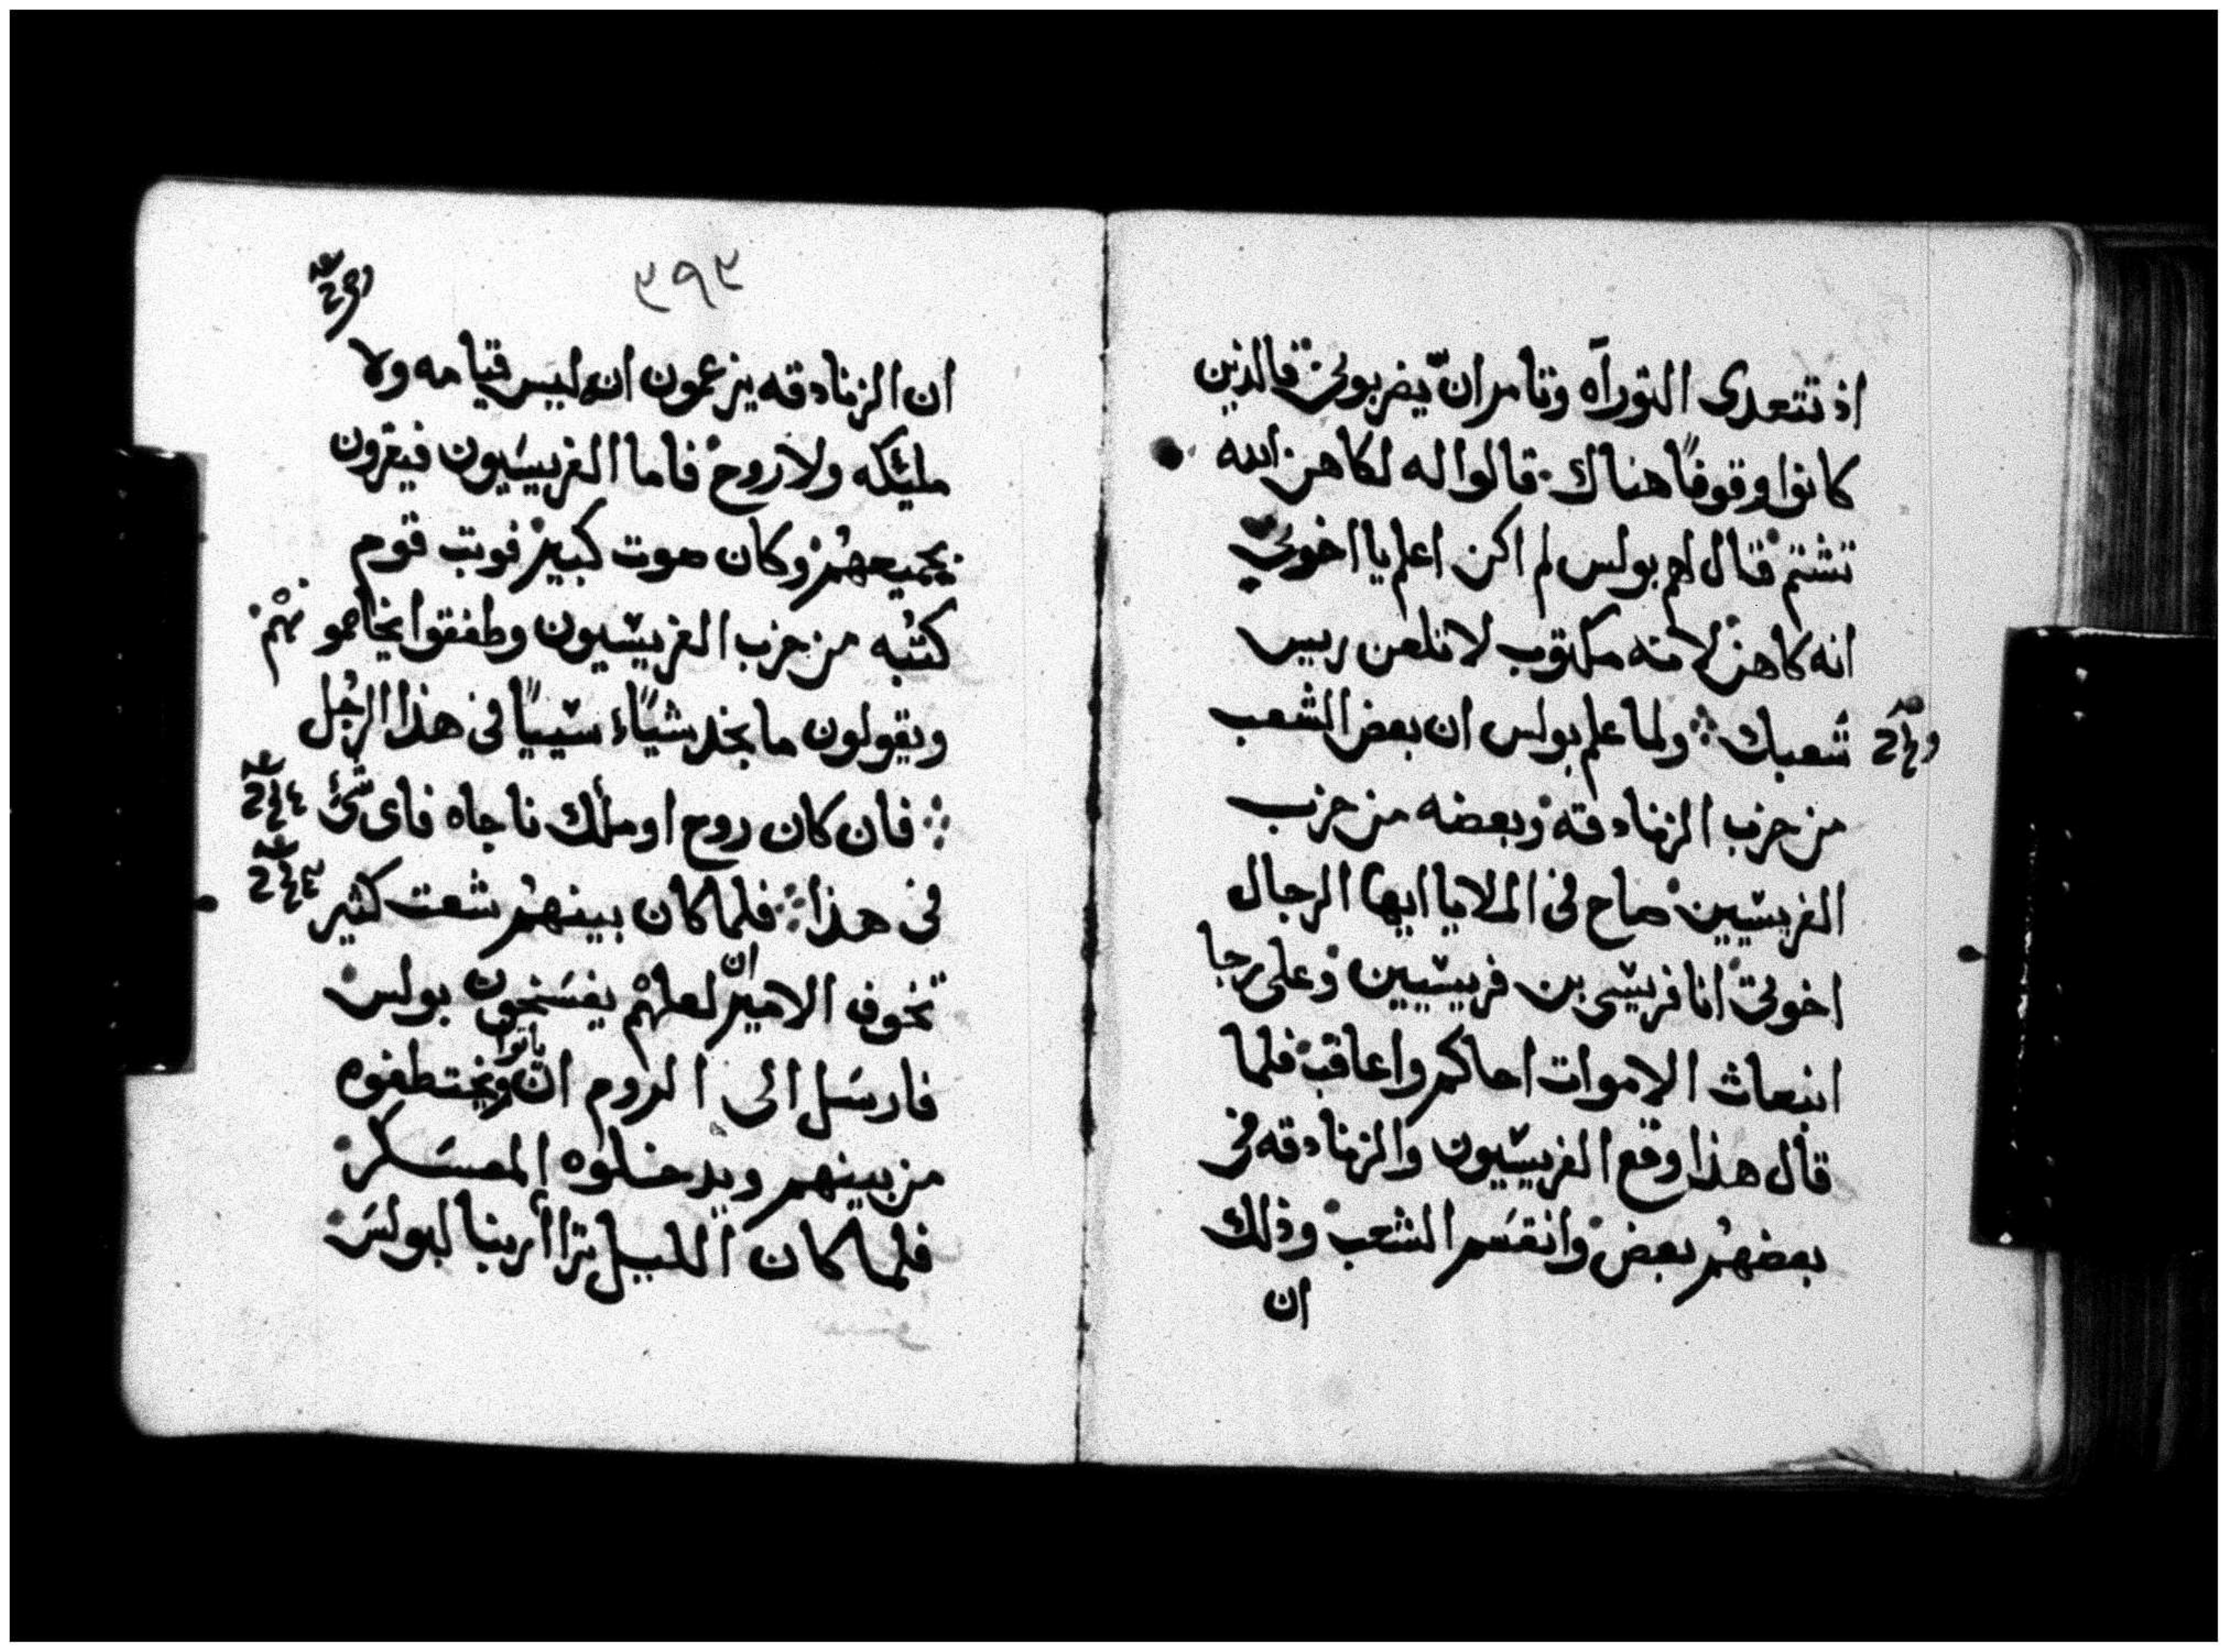 اذ تتعدى التوراه وتامر ان يضربونى فالذين
كانوا وقوفًا هناك قالوا له لكاهن الله
تشتم فقال لهم بولس لم اكن اعلم يا اخوتى
انه كاهن لانه مكتوب لا تلعن رييس
شعبك ولما علم بولس ان بعض الشعب
من حزب الزنادقه وبعضه من حزب
الفريسيين صاح فى الملا يا ايها الرجال
اخوتى انا فريسى بن فريسيين وعلى رجا
انبعاث الاموات احاكم واعاقب فلما
قال هذا وقع الفريسيون والزنادقه فى
بعضهم بعض وانقسم الشعب وذلك
ان
٣٩٣
ان الزنادقه يزعمون انه ليس قيامه ولا
مليكه ولا روح فاما الفريسيون فيقرون
بجميعهم وكان صوت كبير فوثب قوم
كتبه من حزب الفريسيون وطفقوا يخاصمونهم
ويقولون ما نجد شياء سييًا فى هذا الرجل
فان كان روح او ملاك ناجاه فاى شئ
فى هذا فلما كان بينهم شعث كثير
تخوف الامير ان لعلهم يفسخون بولس
فارسل الى الروم ان ياتوا ويختطفوه
من بينهم ويدخلوه المعسكر
فلما كان الليل ترااأ ربنا لبولس